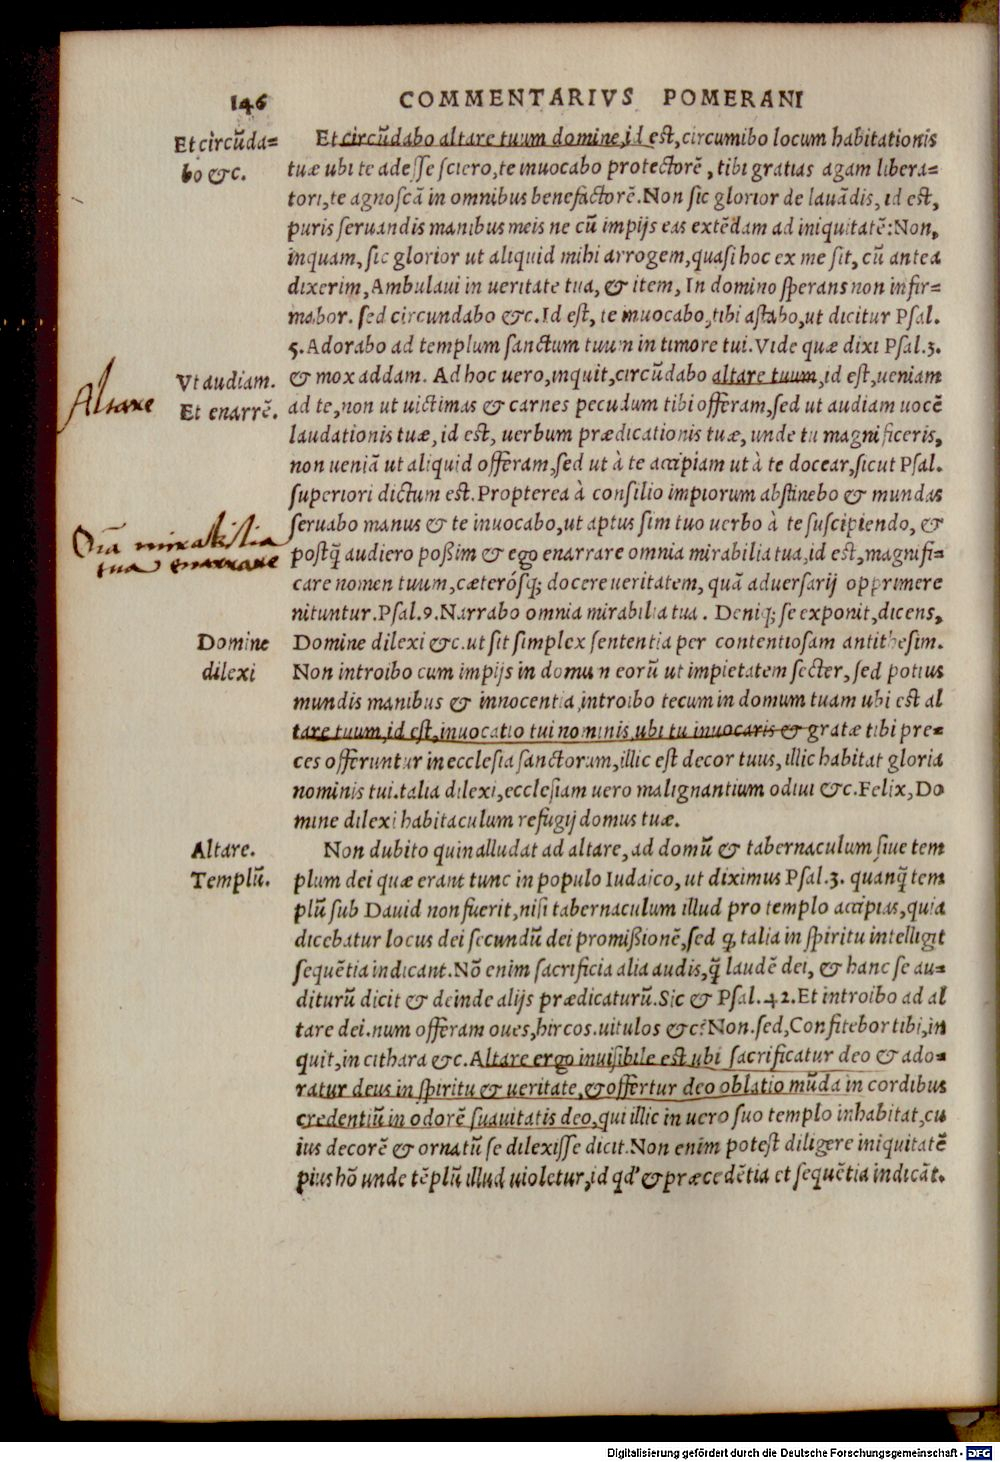 146
COMMENTARIVS POMERANI
Et circũda=
bo &c.
Et circũdabo altare tuum domine, id est, circumibo locum habitationis
tuæ ubi te adesse sciero, te inuocabo protectorẽ, tibi gratias agam libera=
tori, te agnoscã in omnibus benefactorẽ. Non sic glorior de lauãdis, id est,
puris seruandis manibus meis ne cũ impijs eas extẽdam ad iniquitatẽ: Non,
inquam, sic glorior ut aliquid mihi arrogem, quasi hoc ex me sit, cũ antea
dixerim, Ambulaui in ueritate tua, & item, In domino sperans non infir=
mabor. sed circundabo &c. Id est, te inuocabo, tibi astabo, ut dicitur Psal.
5. Adorabo ad templum sanctum tuum in timore tui. Vide quæ dixi Psal. 3.
Altare
Vt audiam.
Et enarrẽ.
& mox addam. Ad hoc uero, inquit, circũdabo altare tuum, id est, ueniam
ad te, non ut uictimas & carnes pecudum tibi offeram, sed ut audiam uocẽ
laudationis tuæ, id est, uerbum prædicationis tuæ, unde tu magnificeris,
non ueniã ut aliquid offeram, sed ut à te accipiam ut à te docear, sicut Psal.
superiori dictum est. Propterea à consilio impiorum abstinebo & mundas
seruabo manus & te inuocabo, ut aptus sim tuo uerbo à te suscipiendo, &
Oĩa mirabilia
tua enarrare
postq̃ audiero possim & ego enarrare omnia mirabilia tua, id est, magnifi=
care nomen tuum, cæterósq; docere ueritatem, quã aduersarij opprimere
nituntur. Psal. 9. Narrabo omnia mirabilia tua. Deniq; se exponit, dicens,
Domine
dilexi
Domine dilexi &c. ut sit simplex sententia per contentiosam antithesim.
Non introibo cum impijs in domum eorũ ut impietatem secter, sed potius
mundis manibus & innocentia introibo tecum in domum tuam ubi est al
tare tuum, id est, inuocatio tui nominis, ubi tu inuocaris & gratæ tibi pre=
ces offeruntur in ecclesia sanctorum, illic est decor tuus, illic habitat gloria
nominis tui. talia dilexi, ecclesiam uero malignantium odiui &c. Felix, Do
mine dilexi habitaculum refugij domus tuæ.
Altare.
Templũ.
Non dubito quin alludat ad altare, ad domũ & tabernaculum siue tem
plum dei quæ erant tunc in populo Iudaico, ut diximus Psal. 3. quanq̃ tem
plũ sub Dauid non fuerit, nisi tabernaculum illud pro templo accipias, quia
dicebatur locus dei secundũ dei promissionẽ, sed q talia in spiritu intelligit
sequẽtia indicant. Nõ enim sacrificia alia audis, q̃ laudẽ dei, & hanc se au=
diturũ dicit & deinde alijs prædicaturũ. Sic & Psal. 42. Et introibo ad al
tare dei. num offeram oues, hircos. uitulos &c? Non. sed, Confitebor tibi, in
quit, in cithara &c. Altare ergo inuisibile est ubi sacrificatur deo & ado=
ratur deus in spiritu & ueritate, & offertur deo oblatio mũda in cordibus
credentiũ in odorẽ suauitatis deo, qui illic in uero suo templo inhabitat, cu
ius decorẽ & ornatũ se dilexisse dicit. Non enim potest diligere iniquitatẽ
pius hõ unde tẽplũ illud uioletur, id qd' & præcedẽtia et sequẽtia indicãt.
Digitalisierung gefördert durch die Deutsche Forschungsgemeinschaft - DFG